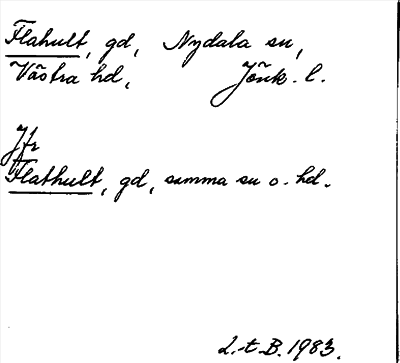 Flahult, gd, Nydala sn,
Västra hd, Jönk. l.
Jfr
Flathult, gd, samma sn o. hd.
L.-t B. 1983.